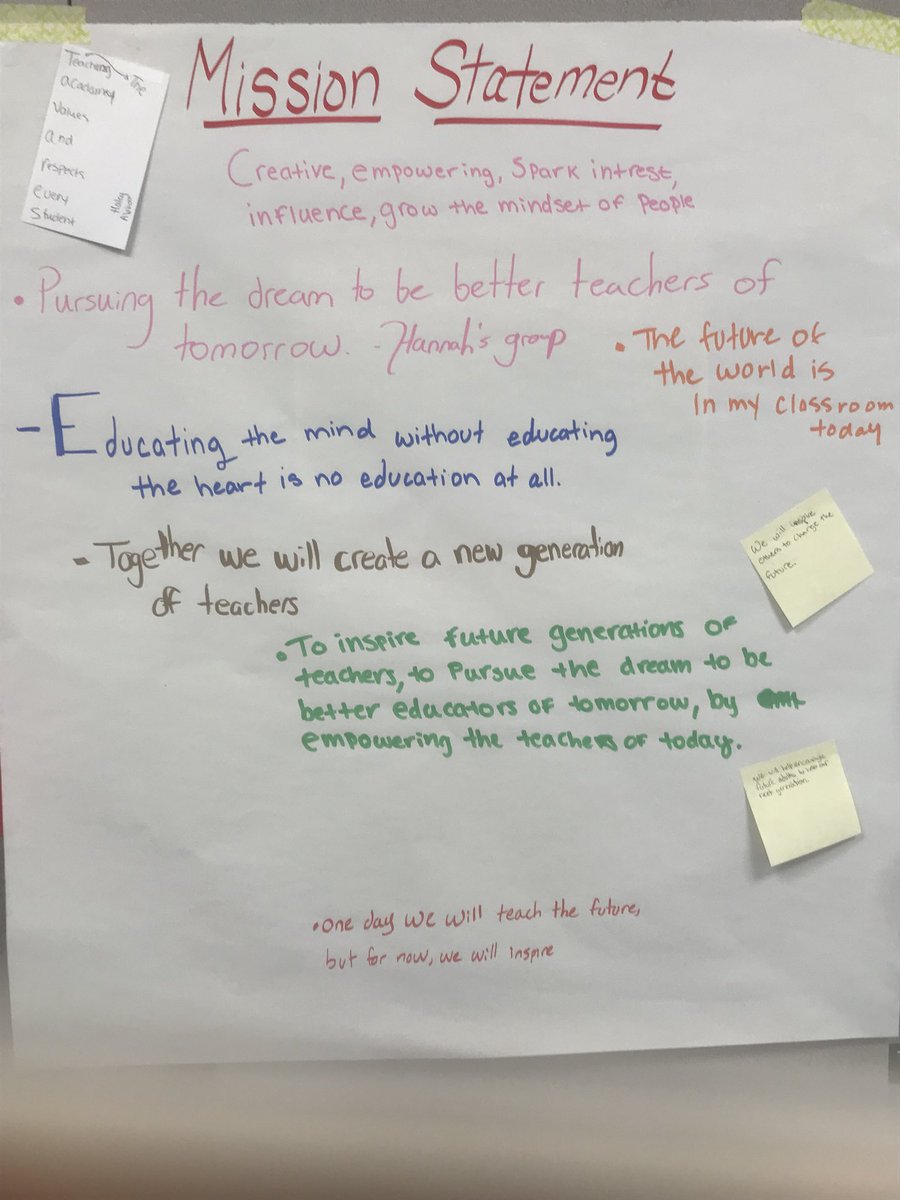 Mission Statement
Teaching The
academy
values
and
respects
every
Student
Creative, empowering, Spark intrest,
influence, grow the mindset of People
• Pursuing the dream to be better teachers of
tomorrow. - Hannah's group
• The future of
the world is
In my classroom
today
- Educating the mind without educating
the heart is no education at all.
- Together we will create a new generation
of teachers
We will inspire
others to change the
future.
• To inspire future generations of
teachers, to Pursue the dream to be
better educators of tomorrow, by
empowering the teachers of today.
next generation.
• One day we will teach the future,
but for now, we will inspire